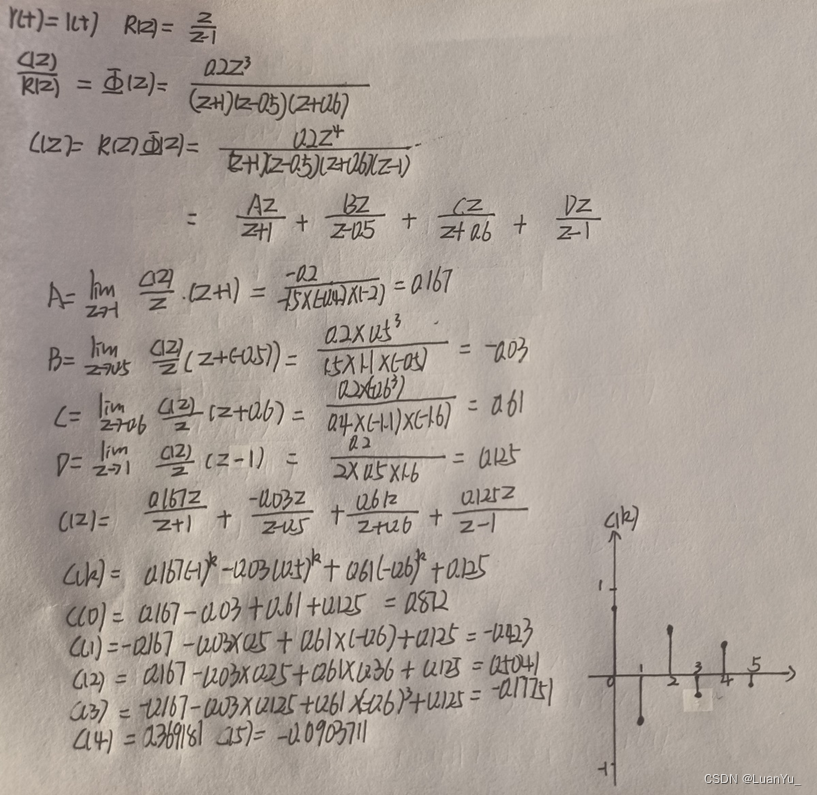 r(t)=1(t) R(z)= z/(z-1)
C(z)/R(z) = Φ(z)= 0.2z³/((z+1)(z-0.5)(z+0.6))
C(z)= R(z)Φ(z)= 0.2z⁴/((z+1)(z-0.5)(z+0.6)(z-1))
= Az/(z+1) + Bz/(z-0.5) + Cz/(z+0.6) + Dz/(z-1)
A= lim z→-1 C(z)/z ·(z+1) = -0.2/(-1.5×(-0.4)×(-2)) = 0.167
B= lim z→0.5 C(z)/z (z+(-0.5)) = 0.2×0.5³/(1.5×1.1×(-0.5)) = -0.03
C= lim z→0.6 C(z)/z (z+0.6) = 0.2×(-0.6³)/(0.4×(-1.1)×(-1.6)) = 0.61
D= lim z→1 C(z)/z (z-1) = 0.2/(2×0.5×1.6) = 0.125
C(z)= 0.167z/(z+1) + -0.03z/(z-0.5) + 0.61z/(z+0.6) + 0.125z/(z-1)
C(k)= 0.167(-1)ᵏ-0.03(0.5)ᵏ+0.61(-0.6)ᵏ+0.125
C(0)= 0.167-0.03+0.61+0.125 =0.872
C(1)=-0.167-0.03×0.5+0.61×(-0.6)+0.125=-0.423
C(2)= 0.167-0.03×0.25+0.61×0.36+0.125=0.5041
C(3)=-0.167-0.03×0.125+0.61×(-0.6)³+0.125=-0.17751
C(4)=0.369181 C(5)=-0.0903711
C(k)
1
0 1 2 3 4 5
-1
CSDN @LuanYu_